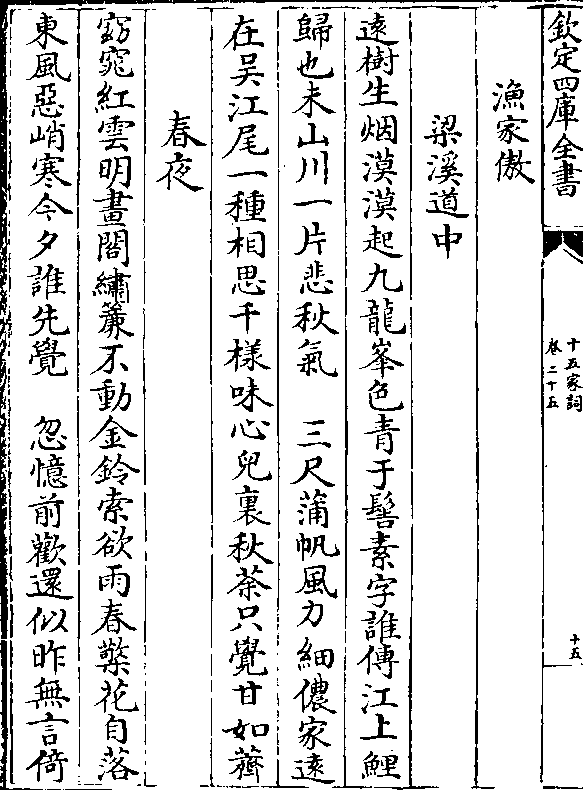 欽定四庫全書
十五家詞
卷二十五
十五
漁家傲
梁溪道中
遠樹生烟漠漠起九龍峯色青于髻素字誰傳江上鯉
歸也未山川一片悲秋氣　三尺蒲帆風力細儂家遠
在吴江尾一種相思千樣味心兒裏秋荼只覺甘如薺
春夜
窈窕紅雲明畫閣繡簾不動金鈴索欲雨春檠花自落
東風惡峭寒今夕誰先覺　忽憶前歡還似昨無言倚